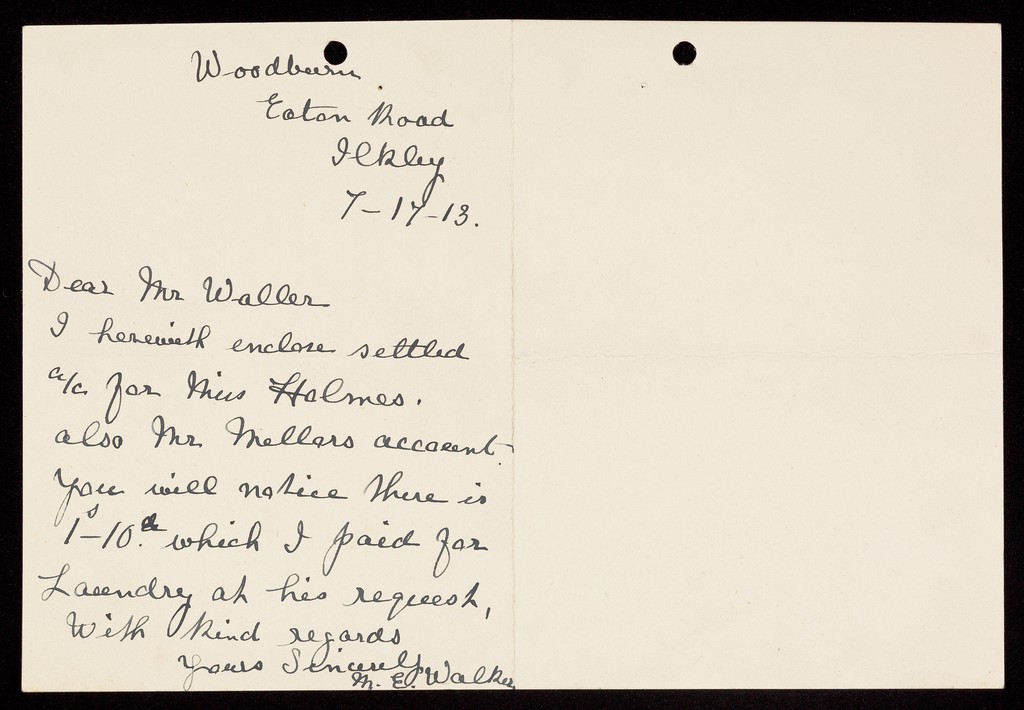 Woodburn
Eaton Road
Ilkley
7-17-13.
Dear Mr Waller
I herewith enclose settled
a/c for Miss Holmes.
also Mr Mellors account.
You will notice there is
1s-10d. which I paid for
Laundry at his request,
With kind regards
Yours Sincerely
M. E. Walker